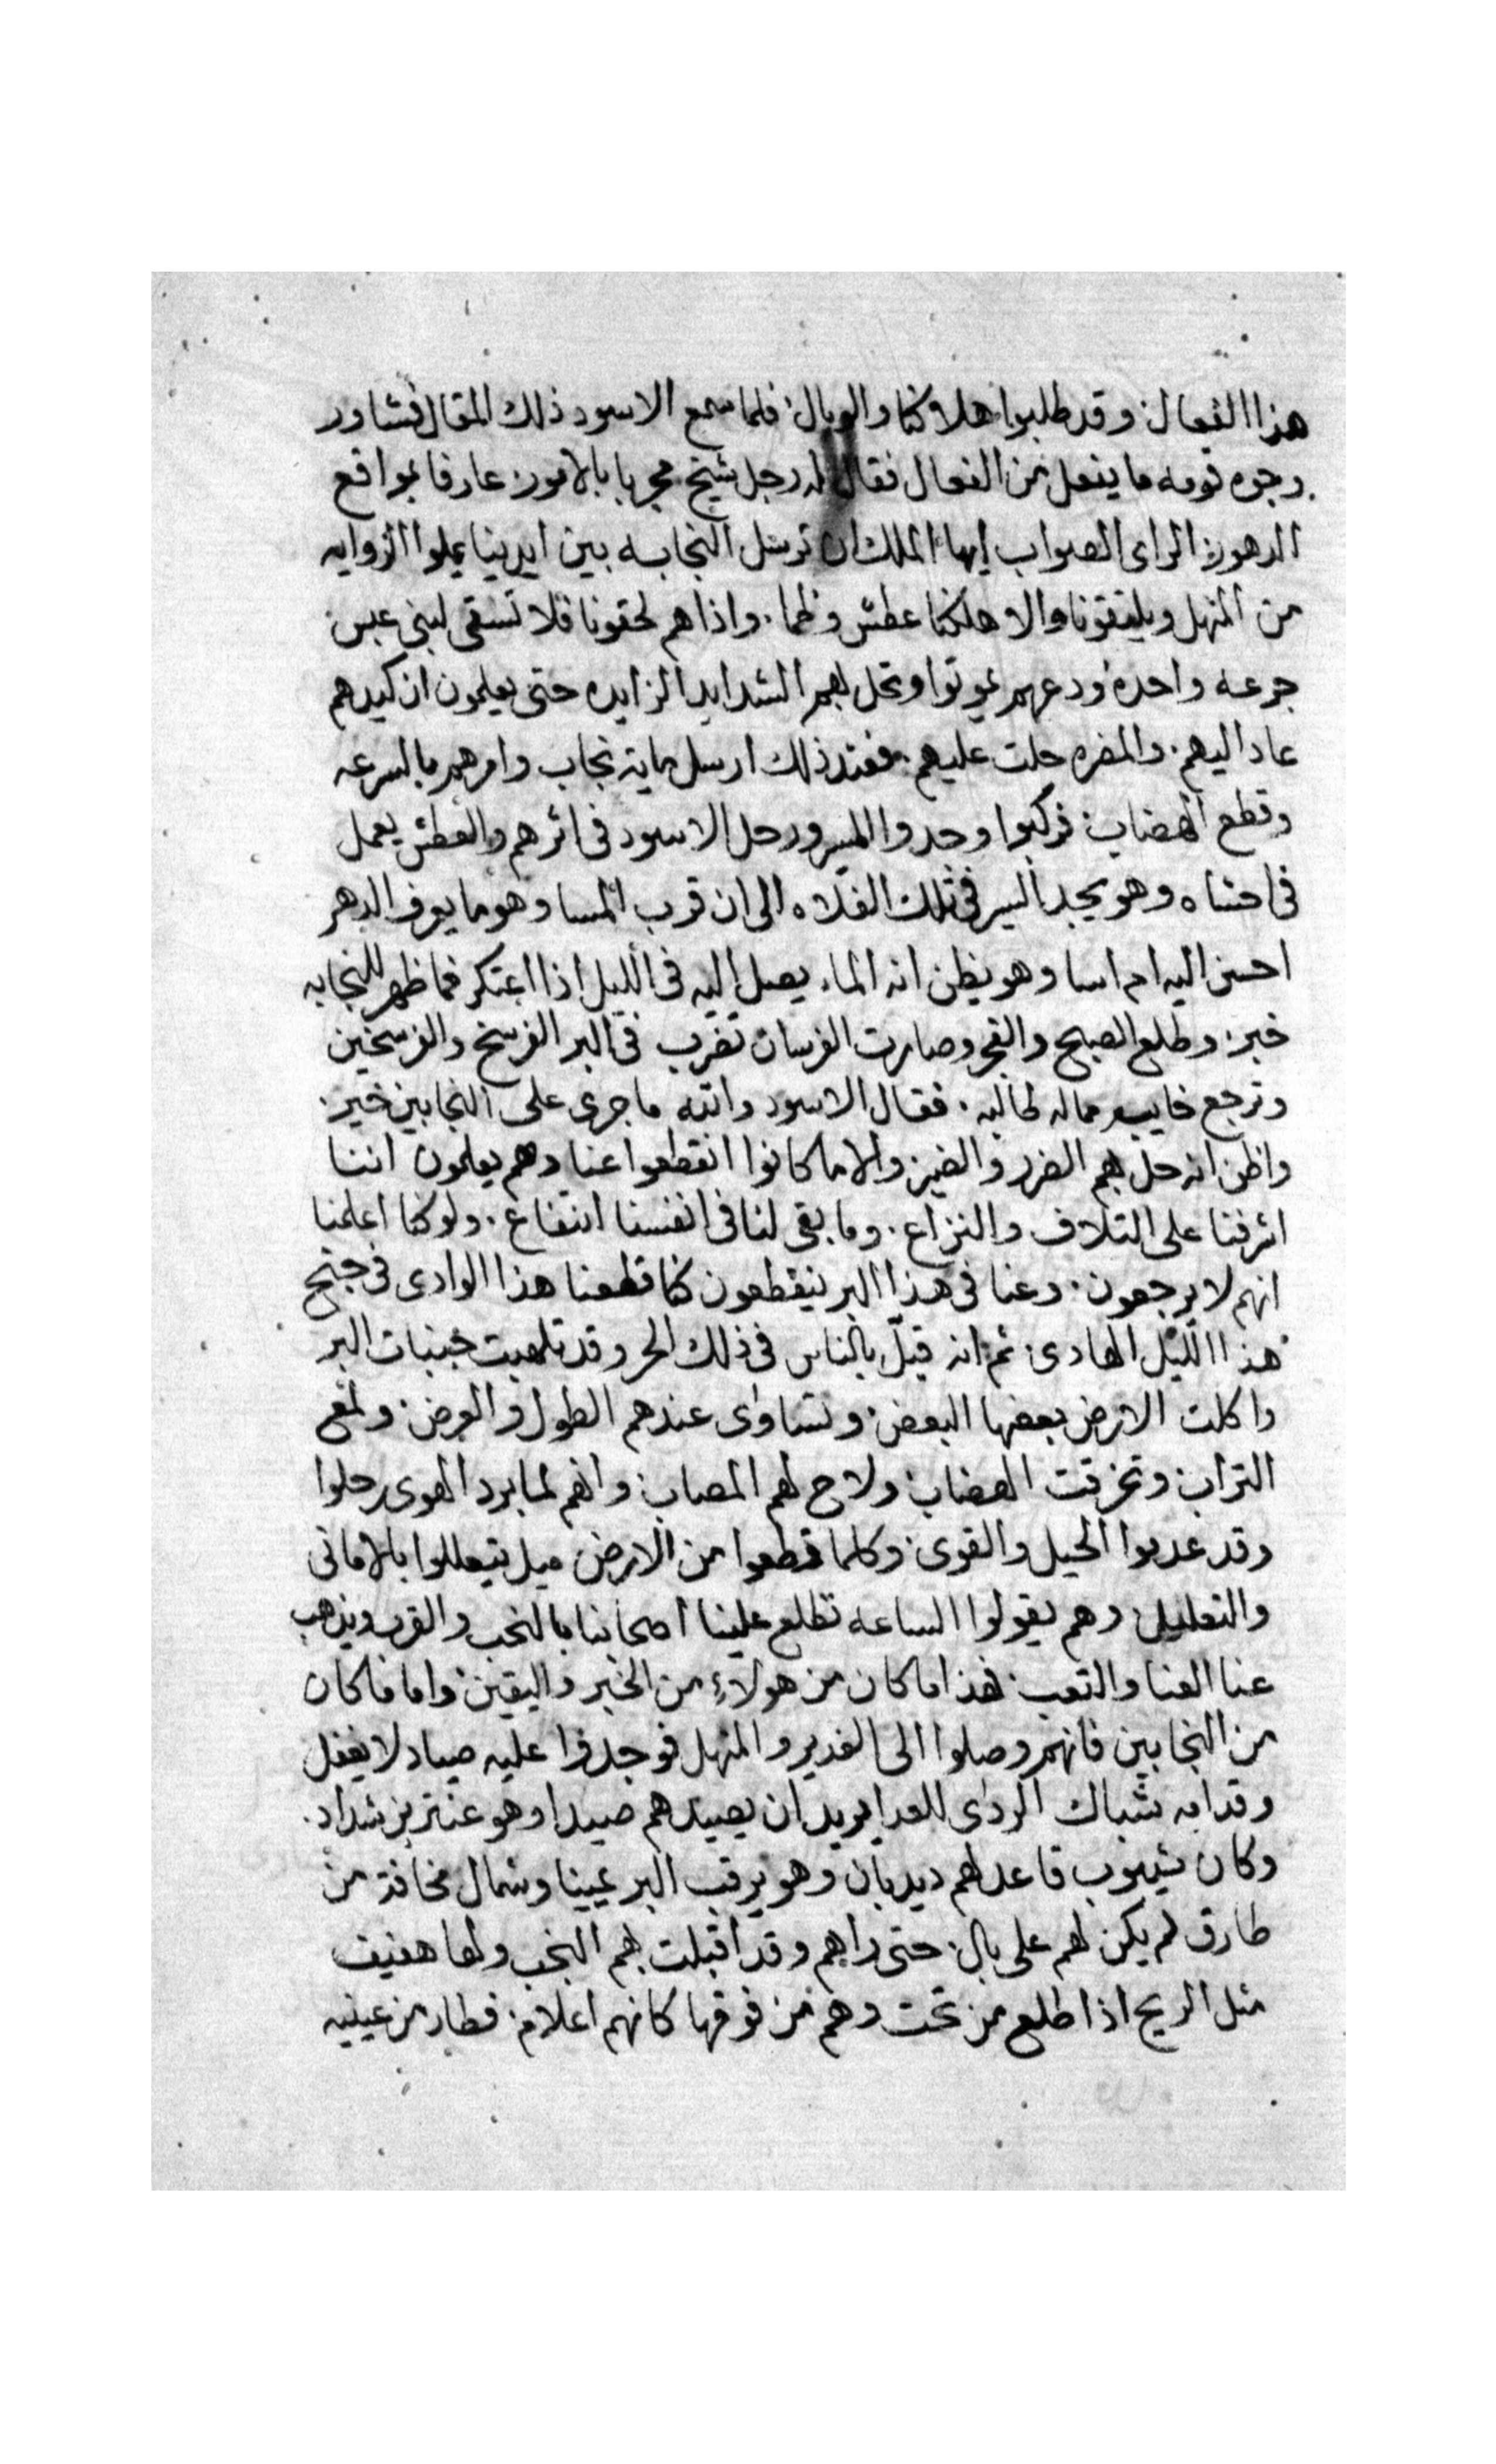 هذا الفعال وقد طلبوا هلاكنا والوبال فلما سمع الاسود ذلك المقال فشاور
وجوه قومه ما يفعل من الفعال فقال له رجل شيخ مجربا بالامور عارفا بمواقع
الدهور الراى الصواب ايها الملك ان ترسل النجابه بين ايدينا يملوا الزوايه
من المنهل ويلتقونا والا هلكنا عطش وظما واذا هم لحقونا فلا تسقى لبنى عبس
جرعه واحده ودعهم يموتوا وتحل بهم الشدايد الزايده حتى يعلمون ان كيدهم
عاد اليهم والمضره حلت عليهم فعند ذلك ارسل ماية نجاب وامرهم بالسرعه
وقطع الهضاب فركبوا وجدوا المسير ورحل الاسود فى اثرهم والعطش يعمل
فى احشاه وهو يجد السير فى تلك الفلاه الى ان قرب المسا وهو ما يعرف الدهر
احسن اليه ام اسا وهو يظن انه الماء يصل اليه فى الليل اذا اعتكر فما ظهر للنجابه
خبر وطلع الصبح والفجر وصارت الفرسان تضرب فى البر الفرسخ والفرسخين
وترجع خايبه مما له طالبه فقال الاسود والله ما جرى على النجابين خير
واظن انه حل بهم الضرر والضير والا ما كانوا انقطعوا عنا وهم يعلمون اننا
اشرفنا على التلاف والنزاع وما بقى لنا فى انفسنا انتفاع ولو كنا اعلمنا
انهم لا يرجعون وعنا فى هذا البر ينقطعون كنا قطعنا هذا الوادى فى جنح
هذا الليل الهادى ثم انه قيل بالناس فى ذلك الحر وقد تلهبت جنبات البر
واكلت الارض بعضها البعض وتساوى عندهم الطول والعرض ولمع
التراب وتخرقت الهضاب ولاح لهم المصاب وانهم لما برد الهوى رحلوا
وقد عدموا الحيل والقوى وكلما قطعوا من الارض ميل يتعللوا بالامانى
والتعليل وهم يقولوا الساعه تطلع علينا اصحابنا بالنجب والقرب ويذهب
عنا العنا والتعب هذا ما كان من هولاء من الخبر واليقين واما ما كان
من النجابين فانهم وصلوا الى الغدير والمنهل فوجدوا عليه صياد لا يغفل
وقدامه شباك الردى للعدا يريد ان يصيدهم صيدا وهو عنتر بن شداد
وكان شيبوب قاعد لهم ديدبان وهو يرقب البر يمينا وشمال مخافة من
طارق لم يكن لهم على بال حتى راهم وقد اقبلت بهم النجب ولها هفيف
مثل الريح اذا طلع من تحت وهم من فوقها كانهم اعلام فطار من عينيه